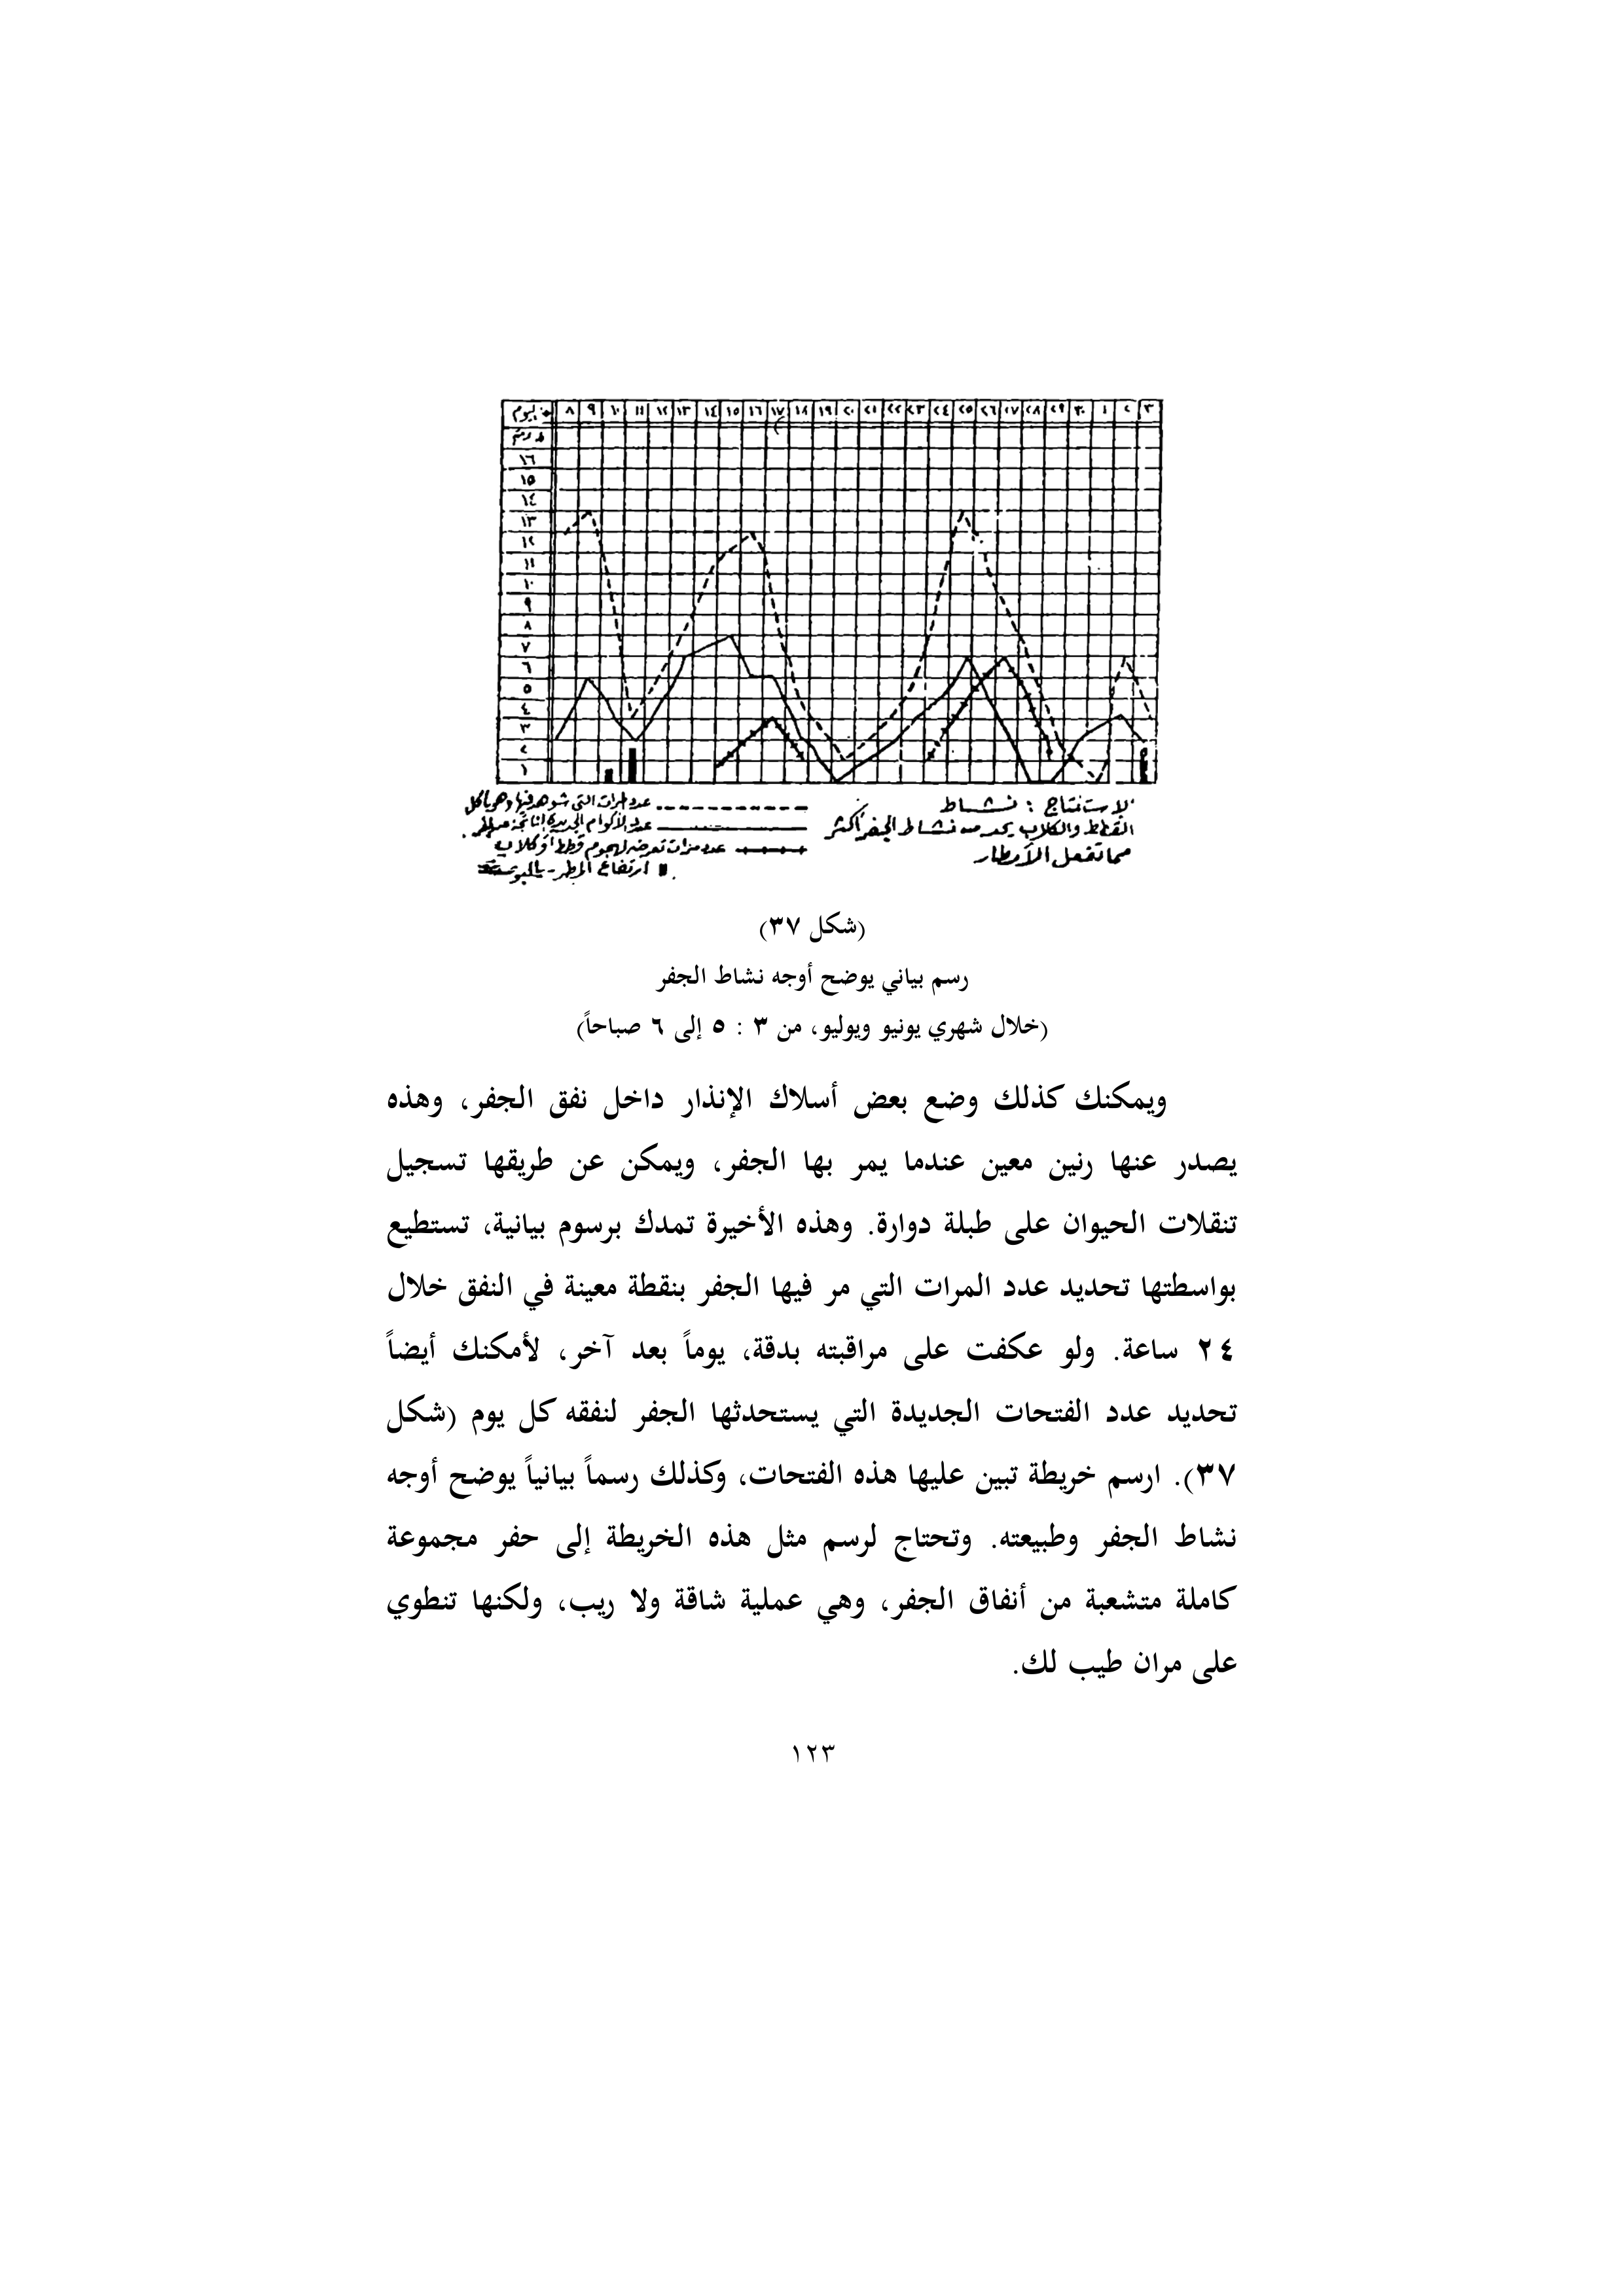 اليوم ٨ ٩ ١٠ ١١ ١٢ ١٣ ١٤ ١٥ ١٦ ١٧ ١٨ ١٩ ٢٠ ٢١ ٢٢ ٢٣ ٢٤ ٢٥ ٢٦ ٢٧ ٢٨ ٢٩ ٣٠ ١ ٢ ٣
١٦
١٥
١٤
١٣
١٢
١١
١٠
٩
٨
٧
٦
٥
٤
٣
٢
١
الاستنتاج : نشاط
القطط والكلاب يحد من نشاط الجفر أكثر
مما تفعل الأمطار
عدد المرات التي شوهد فيها وهو يأكل
عدد الأكوام الجديدة
عدد مرات تعرضه لهجوم قطط أو كلاب
ارتفاع المطر - بالبوصة
(شكل ٣٧)
رسم بياني يوضح أوجه نشاط الجفر
(خلال شهري يونيو ويوليو، من ٣ : ٥ إلى ٦ صباحاً)
ويمكنك كذلك وضع بعض أسلاك الإنذار داخل نفق الجفر، وهذه
يصدر عنها رنين معين عندما يمر بها الجفر، ويمكن عن طريقها تسجيل
تنقلات الحيوان على طبلة دوارة. وهذه الأخيرة تمدك برسوم بيانية، تستطيع
بواسطتها تحديد عدد المرات التي مر فيها الجفر بنقطة معينة في النفق خلال
٢٤ ساعة. ولو عكفت على مراقبته بدقة، يوماً بعد آخر، لأمكنك أيضاً
تحديد عدد الفتحات الجديدة التي يستحدثها الجفر لنفقه كل يوم (شكل
٣٧). ارسم خريطة تبين عليها هذه الفتحات، وكذلك رسماً بيانياً يوضح أوجه
نشاط الجفر وطبيعته. وتحتاج لرسم مثل هذه الخريطة إلى حفر مجموعة
كاملة متشعبة من أنفاق الجفر، وهي عملية شاقة ولا ريب، ولكنها تنطوي
على مران طيب لك.
١٢٣